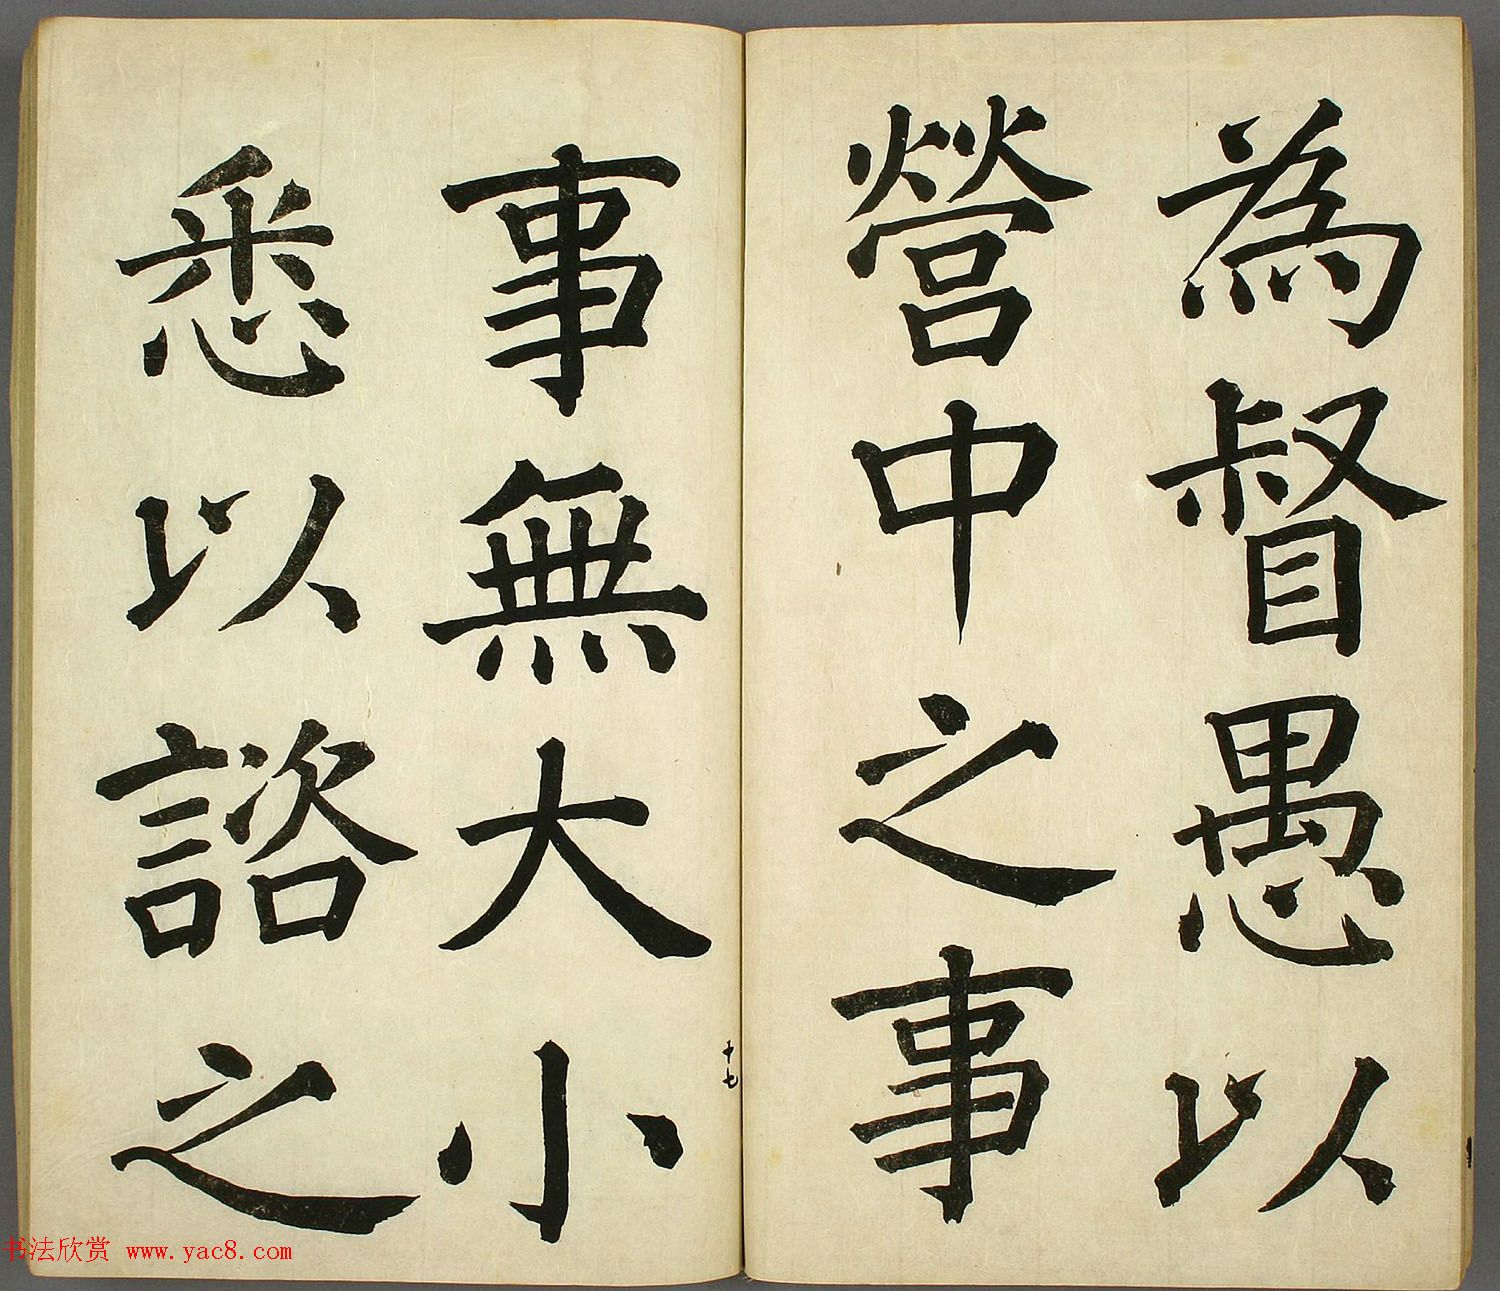 為督愚以
營中之事
事無大小
悉以諮之
十七
书法欣赏 www.yac8.com